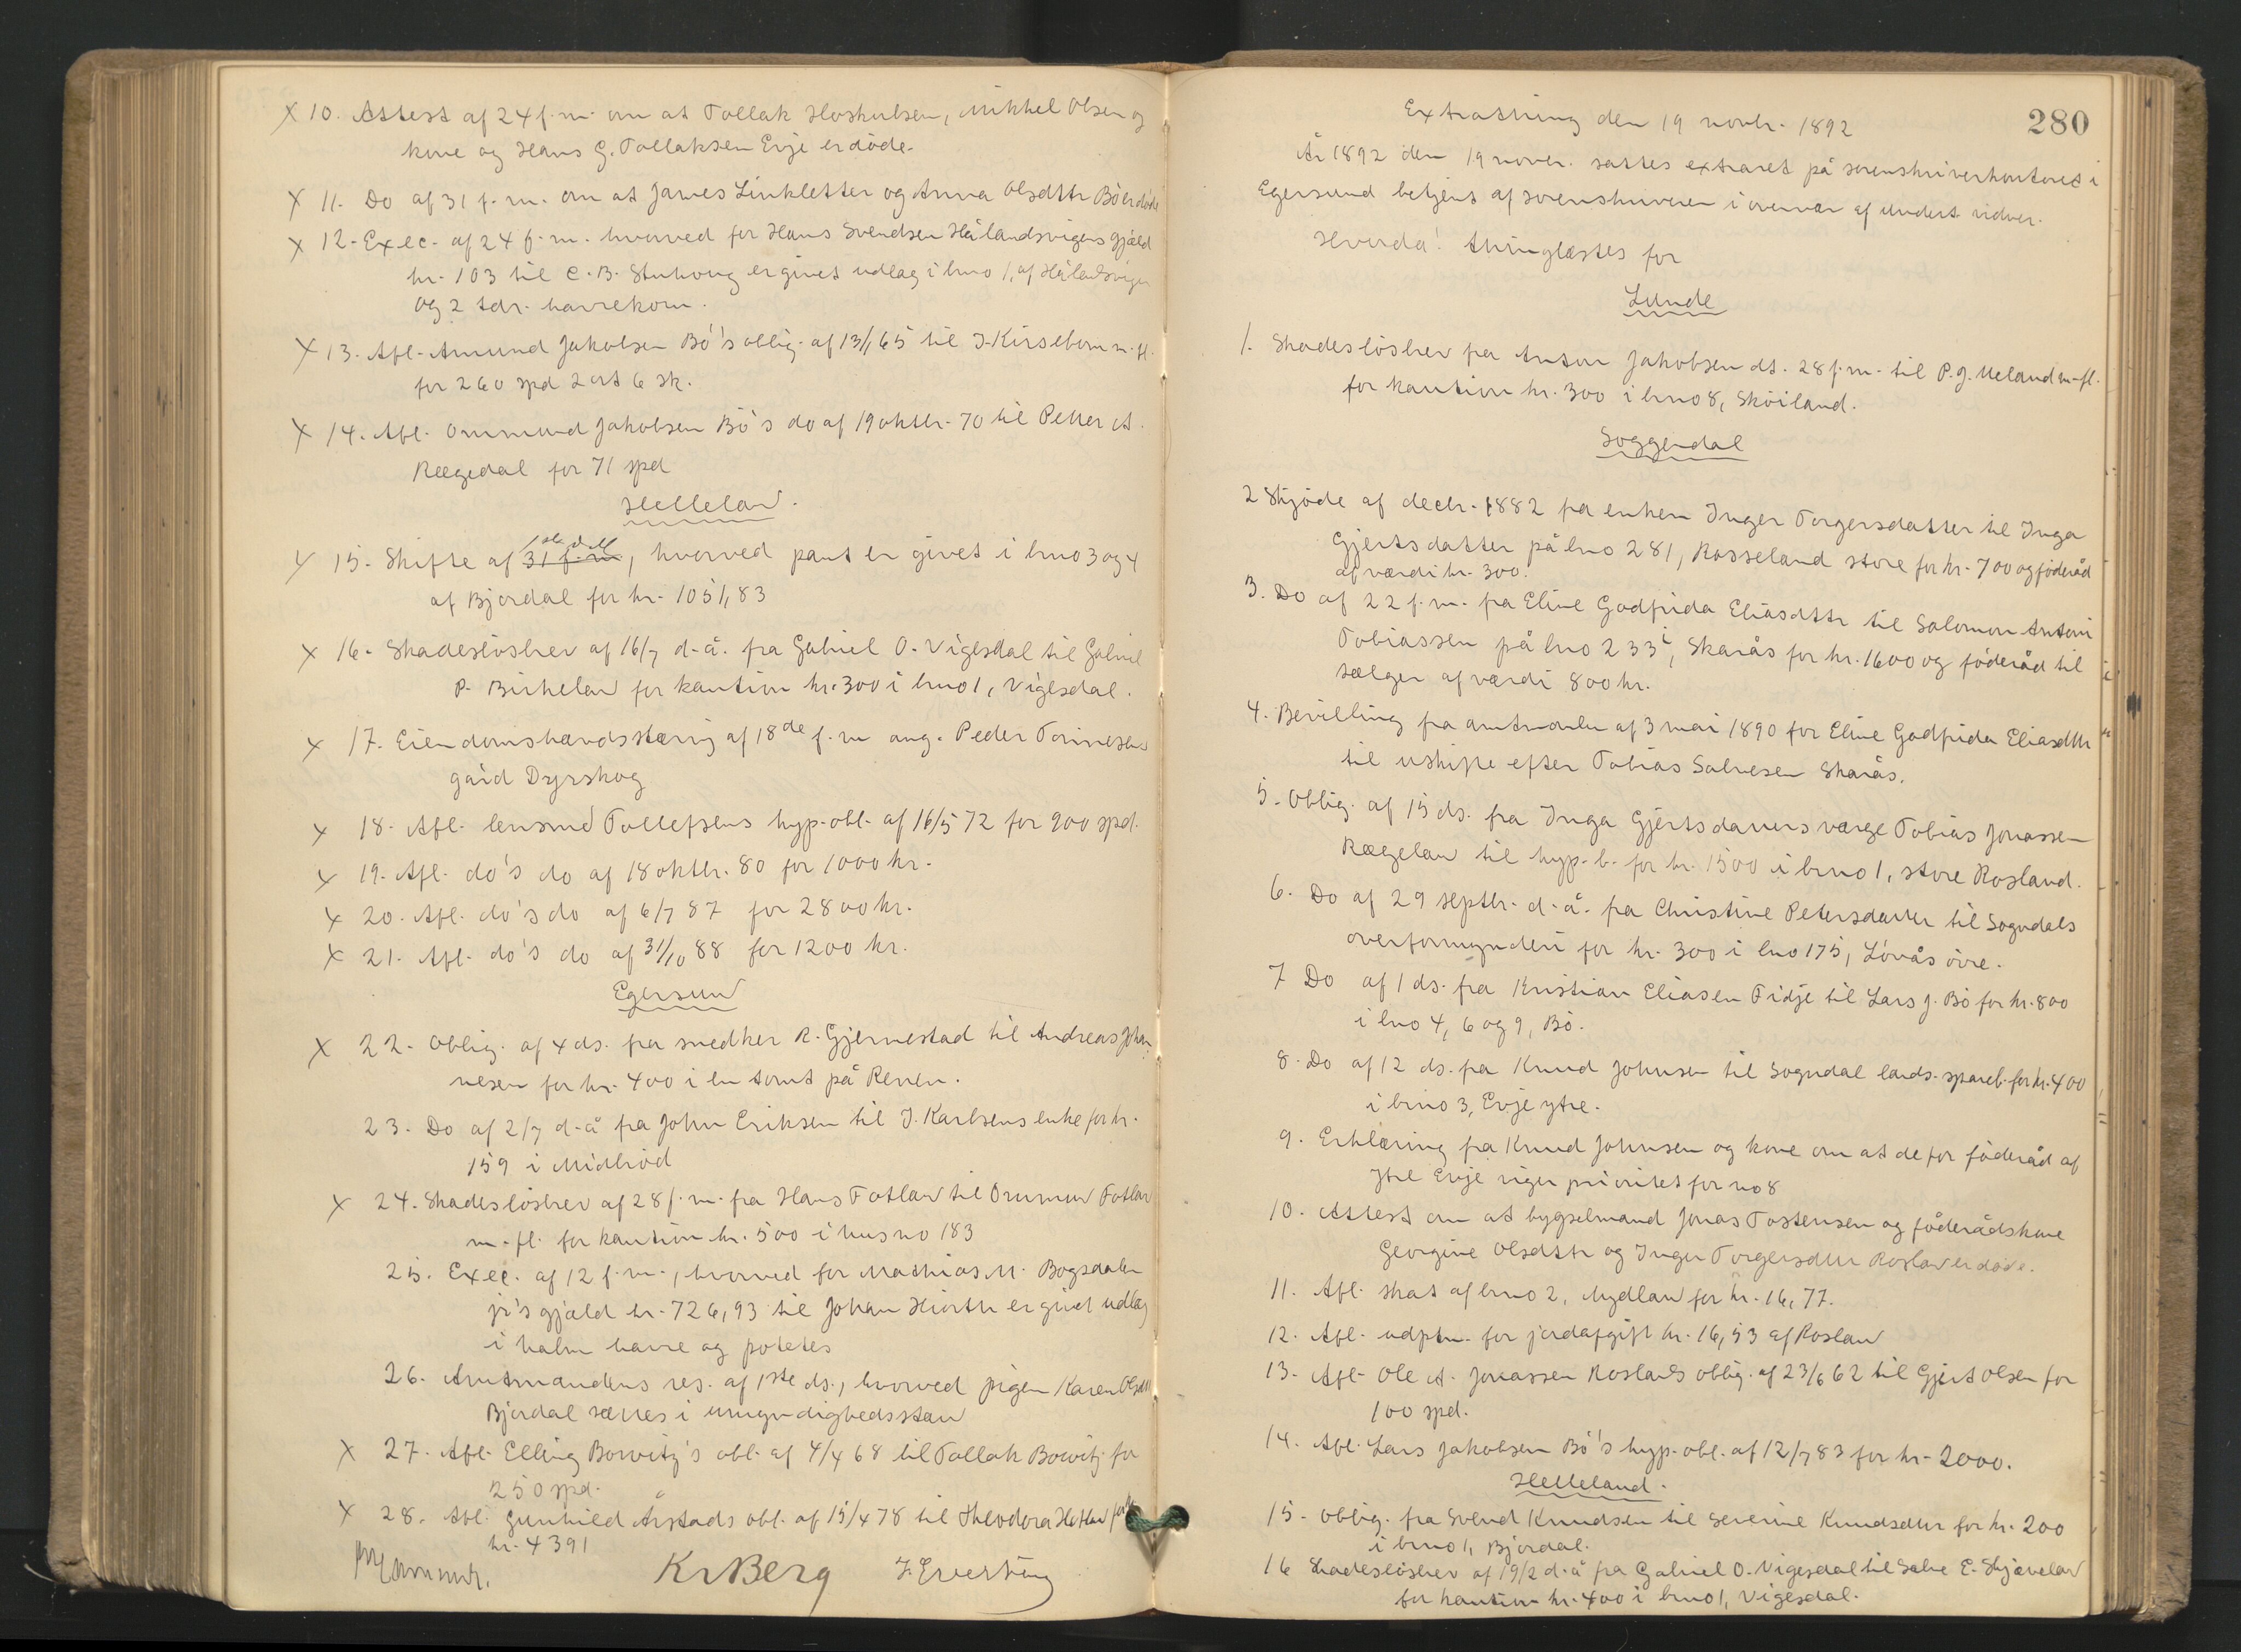 X 10. Attest af 24 f.m. om at Tollak Hoskulsen, Mikkel Olsen og
kone og Hans G. Tollaksen Evje er døde.
X 11. Do af 31 f.m. om at James Linkletter og Anna Olsdttr Bö er döde
X 12. Exec. af 24 f.m. hvorved for Hans Svendsen Hålandsvigens gjæld
kr. 103 til C.B. er givet udlæg i bno 1, af Hålandsvigen
og 2 tdr. havrekorn.
X 13. Afl. Amund Jakobsen Bö's oblig. af 13/1 65 til J. Kirsebom m.fl.
for 260 spd 2 ort 6 sk.
X 14. Afl. Ommund Jakobsen Bö's do af 19 oktbr. 70 til Petter A.
Rægedal for 71 spd
Helleland.
X 15. Skifte af 31 f.m, hvorved pant er givet i bno 3 og 4
af Bjordal for kr. 1051,83
X 16. Skadeslösbrev af 16/7 d.å. fra Gabriel O. Vigesdal til Gabriel
P. Birkeland for kaution kr. 300 i bno 1, Vigesdal.
X 17. Eiendomshævdsskæring af 18de f.m ang. Peder
gård Dyrskog
X 18. Afl. lensmd Tollefsens hyp. obl. af 16/5 72 for 900 spd.
X 19. Afl. do's do af 18 oktbr. 80 for 1000 kr.
X 20. Afl. do's do af 6/7 87 for 2800 kr.
X 21. Afl. do's do af 31/10 88 for 1200 kr.
Egersund
X 22. Oblig. af 4 ds. fra snedker R. Gjermestad til Andreas Johan
nesen for kr. 400 i en tomt på
23. Do af 2/7 d.å fra John Eriksen til J. Karlsens enke for kr.
159 i Midbröd
X 24. Skadeslösbrev af 28 f.m. fra Hans Fotland til Ommund Fotland
m.fl. for kaution kr. 500 i hus no 183
25. Exec. af 12 f.m., hvorved for Mathias M. Bøgsdalen
jr's gjæld kr. 726,93 til Johan Hiorth er givet udlæg
i halm havre og potetes
26. Amtmandens res. af 1ste ds., hvorved pigen Karen Olsdttr
Bjordal sættes i umyndighedsstand
X 27. Afl. Elling Bowitz's obl. af 4/4 68 til Tollak Bowitz for
250 spd.
X 28. Afl. Gunhild Årstads obl. af 15/4 78 til Theodora Hetland for
kr. 4391
Kr Berg
280
Extrathing den 19 novbr. 1892
År 1892 den 19 novbr. sattes extraret på sorenskriverkontoret i
Egersund betjent af sorenskriveren i overvær af undert. vidner.
Hvorda! thinglæstes for
Lunde
1. Skadeslösbrev fra Anton Jakobsen dt. 28 f.m. til P.J. Ueland m.fl.
for kaution kr. 300 i bno 8, Sköiland.
Soggendal
2 Skjöde af decbr. 1882 fra enken Inger Torgersdatter til Inga
Gjertsdatter på lno 281, Rosseland store for kr. 700 og föderåd
af værdi kr. 300.
3. Do af 22 f.m. fra Eline Godfrida Eliasdttr til Salomon Antoni
Tobiassen på lno 233 i, Skarås for kr. 1600 og föderåd til
sælger af værdi 800 kr.
4. Bevilling fra amtmanden af 3 mai 1890 for Eline Godfrida Eliasdttr
til uskifte efter Tobias Salvesen Skarås.
5. Oblig. af 15 ds. fra Inga Gjertsdatters værge Tobias Jonassen
Rægeland til hyp. b. for kr. 1500 i bno 1, store Rosland.
6. Do af 29 septbr. d.å. fra Christine Petersdatter til Sogndals
overformynderi for kr. 300 i lno 175, Lövås övre.
7 Do af 1 ds. fra Kristian Eliasen Fidje til Lars J. Bö for kr. 800
i lno 4, 6 og 9, Bö.
8. Do af 12 ds. fra Knud Johnsen til Sogndal lands. spareb. for kr. 400
i bno 3, Evje ytre.
9. Erklæring fra Knud Johnsen og kone om at de for föderåd af
ytre Evje viger prioritet for no 8
10. Attest om at bygselmand Jonas Tostensen og föderådskone
Georgine Olsdttr og Inger Torgersdttr Rosland er døde.
11. Afl. skat af bno 2, Mydland for kr. 16,77.
12. Afl. udptn. for jordafgift kr. 16,53 af Rosland
13. Afl. Ole A. Jonassen Roslands oblig. af 23/6 62 til Gjert Olsen for
100 spd.
14. Afl. Lars Jakobsen Bö's hyp. obl. af 12/7 83 for kr. 2000.
Helleland.
15. Oblig. fra Svend Knudsen til Serine Knudsdttr for kr. 200
i bno 1, Bjordal.
16 Skadeslösbrev af 19/2 d.å fra Gabriel O. Vigesdal til Salve E. Skjæveland
for kaution kr. 400 i bno 1, Vigesdal.